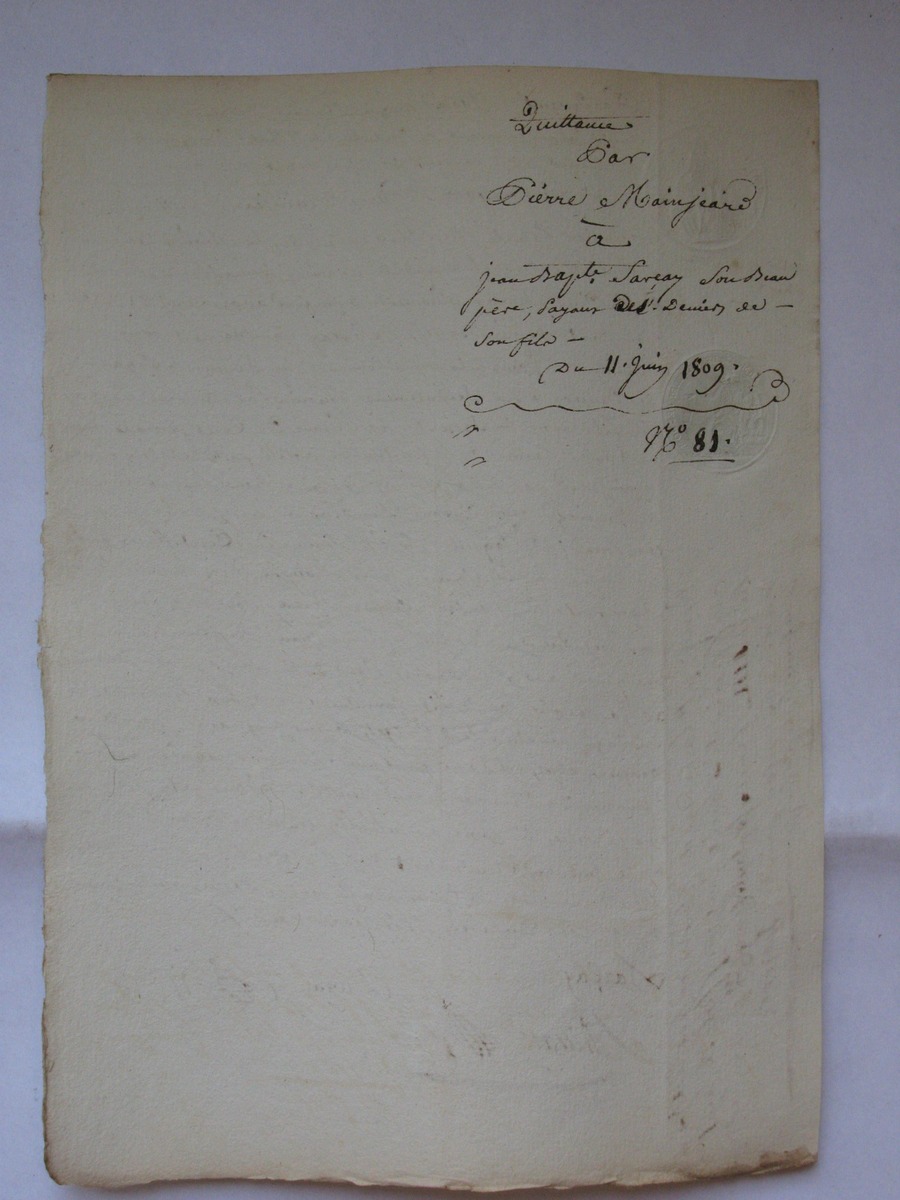 Quittance
Par
Pièrre Mainjeard
à
jean Bapte. Sarçay Son Beau
père, Payant Des. Deniers de —
Son fils —
Du 11. juin 1809.
No 81.